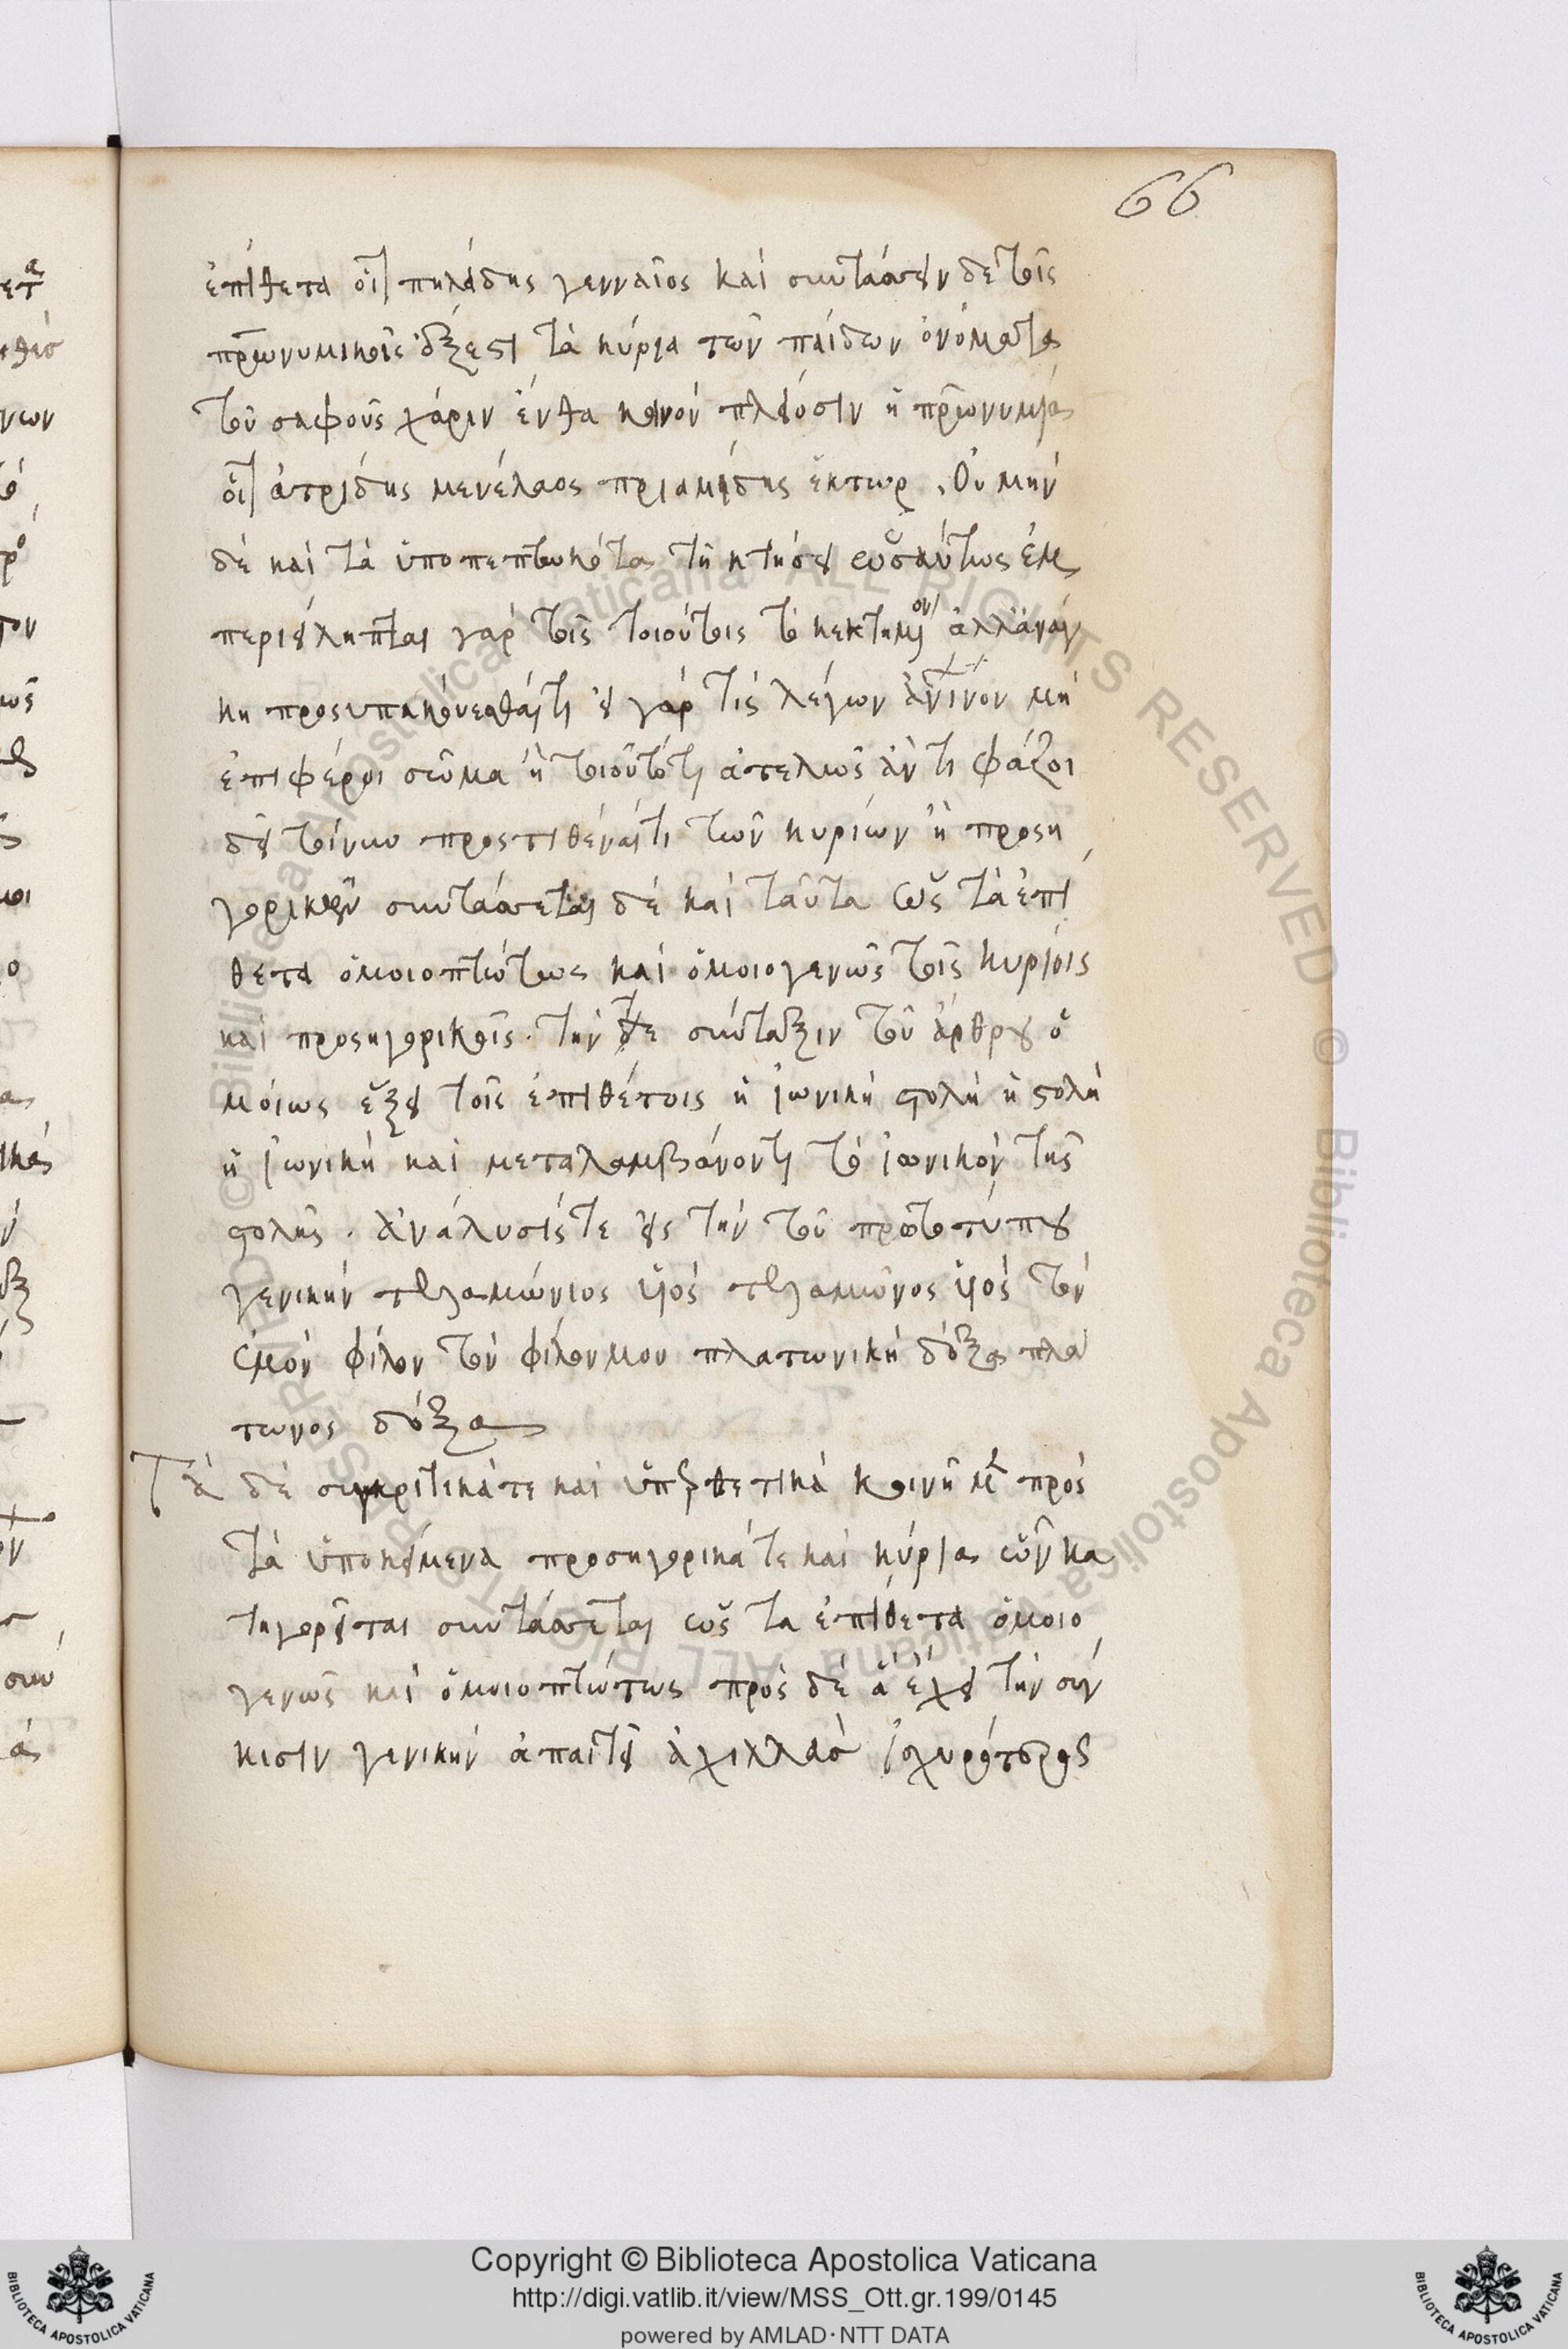 66
ἐπίθετα οἷ πηλείδης γενναῖος καὶ συντάσσειν δὲ τοῖς
πρωνυμικοῖς ἔξεστι τὰ κύρια τῶν παίδων ὀνόματα
τοῦ σαφοῦς χάριν ἔνθα κοινὸν πλείοσιν ἡ πρωνυμία
οἷ ἀτρείδης μενέλαος πριαμίδης ἕκτωρ. Οὐ μὴν
δὲ καὶ τὰ ὑποπεπτωκότα τῆ κτήσει ὡσαύτως ἐμ
περιείληπται γὰρ τοῖς τοιούτοις τὸ κεκτημένον ἀλλ' ἀνάγ
κη προσυπακούεσθαί τι εἰ γάρ τις λέγων μὴ
ἐπιφέροι σῶμα ἢ τοιοῦτό τι ἀτελῶς ἄν τι φράζοι
δεῖ τοίνυν προστιθέναί τι τῶν κυρίων ἢ προση
γορικῶν συντάσσεται δὲ καὶ ταῦτα ὡς τὰ ἐπί
θετα ὁμοιοπτώτως καὶ ὁμοιογενῶς τοῖς κυρίοις
καὶ προσηγορικοῖς. τὴν τε σύνταξιν τοῦ ἄρθρου ὁ
μοίως ἕξει τοῖς ἐπιθέτοις ἡ ἰωνικὴ στολὴ ἡ στολὴ
ἡ ἰωνικὴ καὶ μεταλαμβάνοντι τὸ ἰωνικὸν τῆς
στολῆς. ἀνάλυσίς τε εἰς τὴν τοῦ πρωτοτύπου
γενικὴν τελαμώνιος υἱὸς τελαμῶνος υἱὸς τὸν
ἐμὸν φίλον τὸν φίλον μου πλατωνικὴ δόξα πλά
τωνος δόξα
Τὰ δὲ συγκριτικά τε καὶ ὑπερθετικὰ κοινῆ μὲν πρὸς
τὰ ὑποκείμενα προσηγορικά τε καὶ κύρια ὧν κα
τηγορεῖται συντάσσεται ὡς τὰ ἐπίθετα ὁμοιο
γενῶς καὶ ὁμοιοπτώτως πρὸς δὲ ἃ ἔχει τὴν σύγ
κισιν γενικὴν ἀπαιτεῖ ἀχιλλεὺς ἰσχυρότερος
Copyright © Biblioteca Apostolica Vaticana
http://digi.vatlib.it/view/MSS_Ott.gr.199/0145
powered by AMLAD·NTT DATA